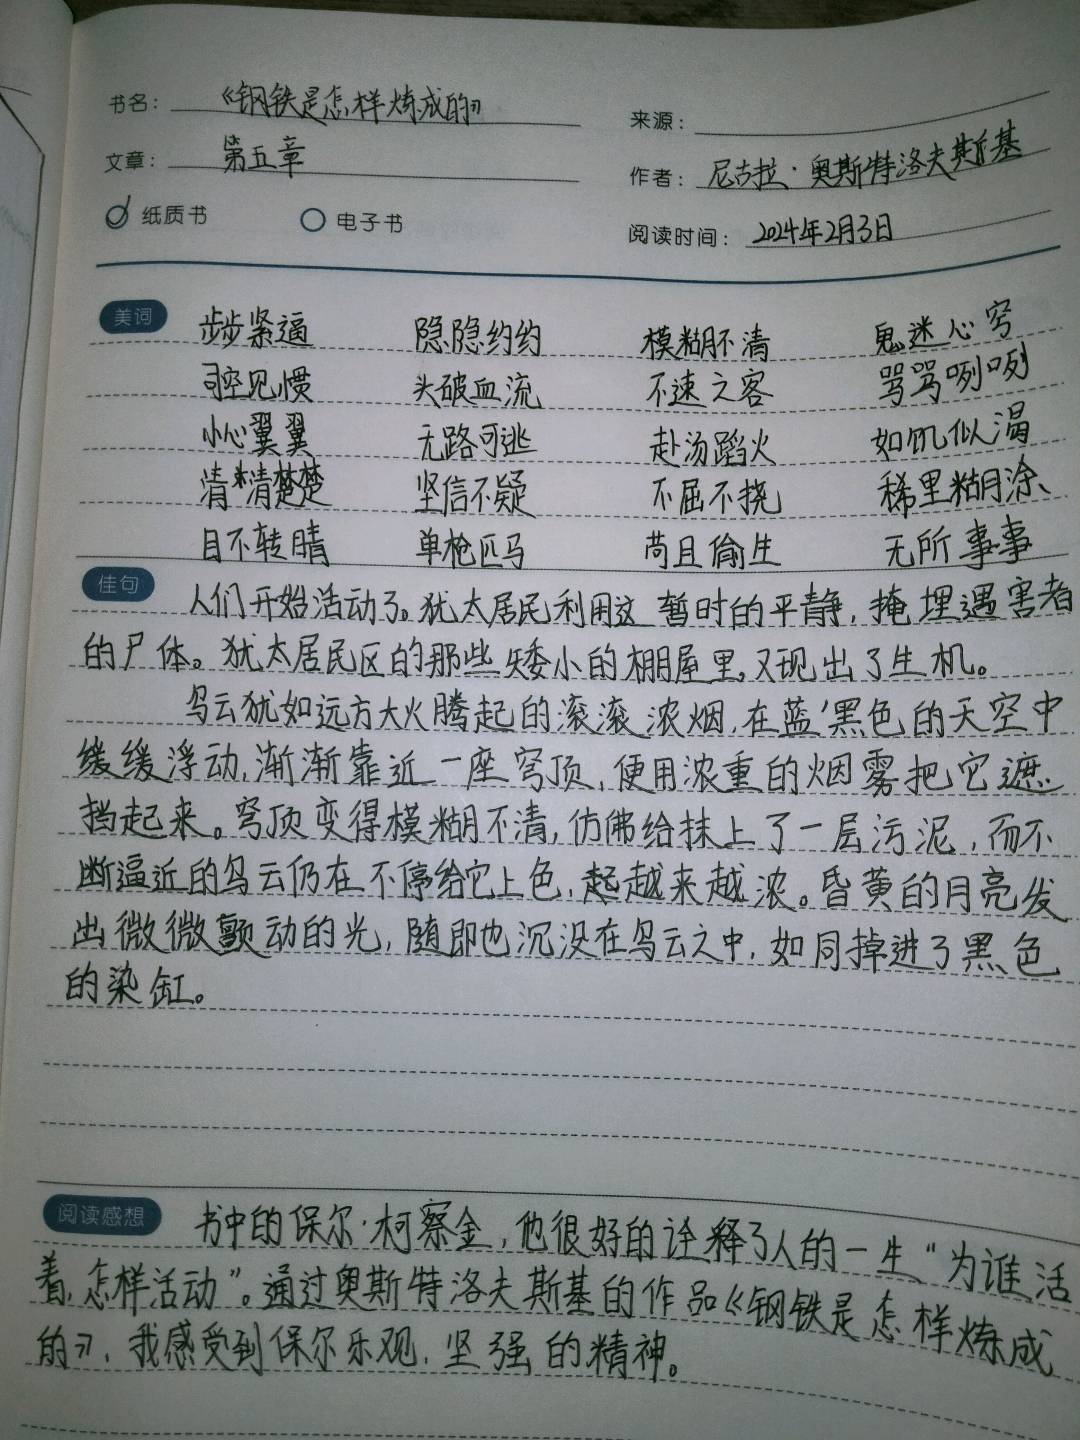 书名：《钢铁是怎样炼成的》
来源：
文章：第五章
作者：尼古拉·奥斯特洛夫斯基
纸质书 电子书
阅读时间：2024年2月3日
美词 步步紧逼 隐隐约约 模糊不清 鬼迷心窍
司空见惯 头破血流 不速之客 骂骂咧咧
小心翼翼 无路可逃 赴汤蹈火 如饥似渴
清清楚楚 坚信不疑 不屈不挠 稀里糊涂
目不转睛 单枪匹马 苟且偷生 无所事事
佳句 人们开始活动了。犹太居民利用这暂时的平静，掩埋遇害者
的尸体。犹太居民区的那些矮小的棚屋里，又现出了生机。
乌云犹如远方大火腾起的滚滚浓烟，在蓝黑色的天空中
缓缓浮动，渐渐靠近一座穹顶，便用浓重的烟雾把它遮
挡起来。穹顶变得模糊不清，仿佛给抹上了一层污泥，而不
断逼近的乌云仍在不停给它上色，越来越浓。昏黄的月亮发
出微微颤动的光，随即也沉没在乌云之中，如同掉进了黑色
的染缸。
阅读感想 书中的保尔·柯察金，他很好的诠释了人的一生“为谁活
着，怎样活动”。通过奥斯特洛夫斯基的作品《钢铁是怎样炼成
的》，我感受到保尔乐观，坚强的精神。